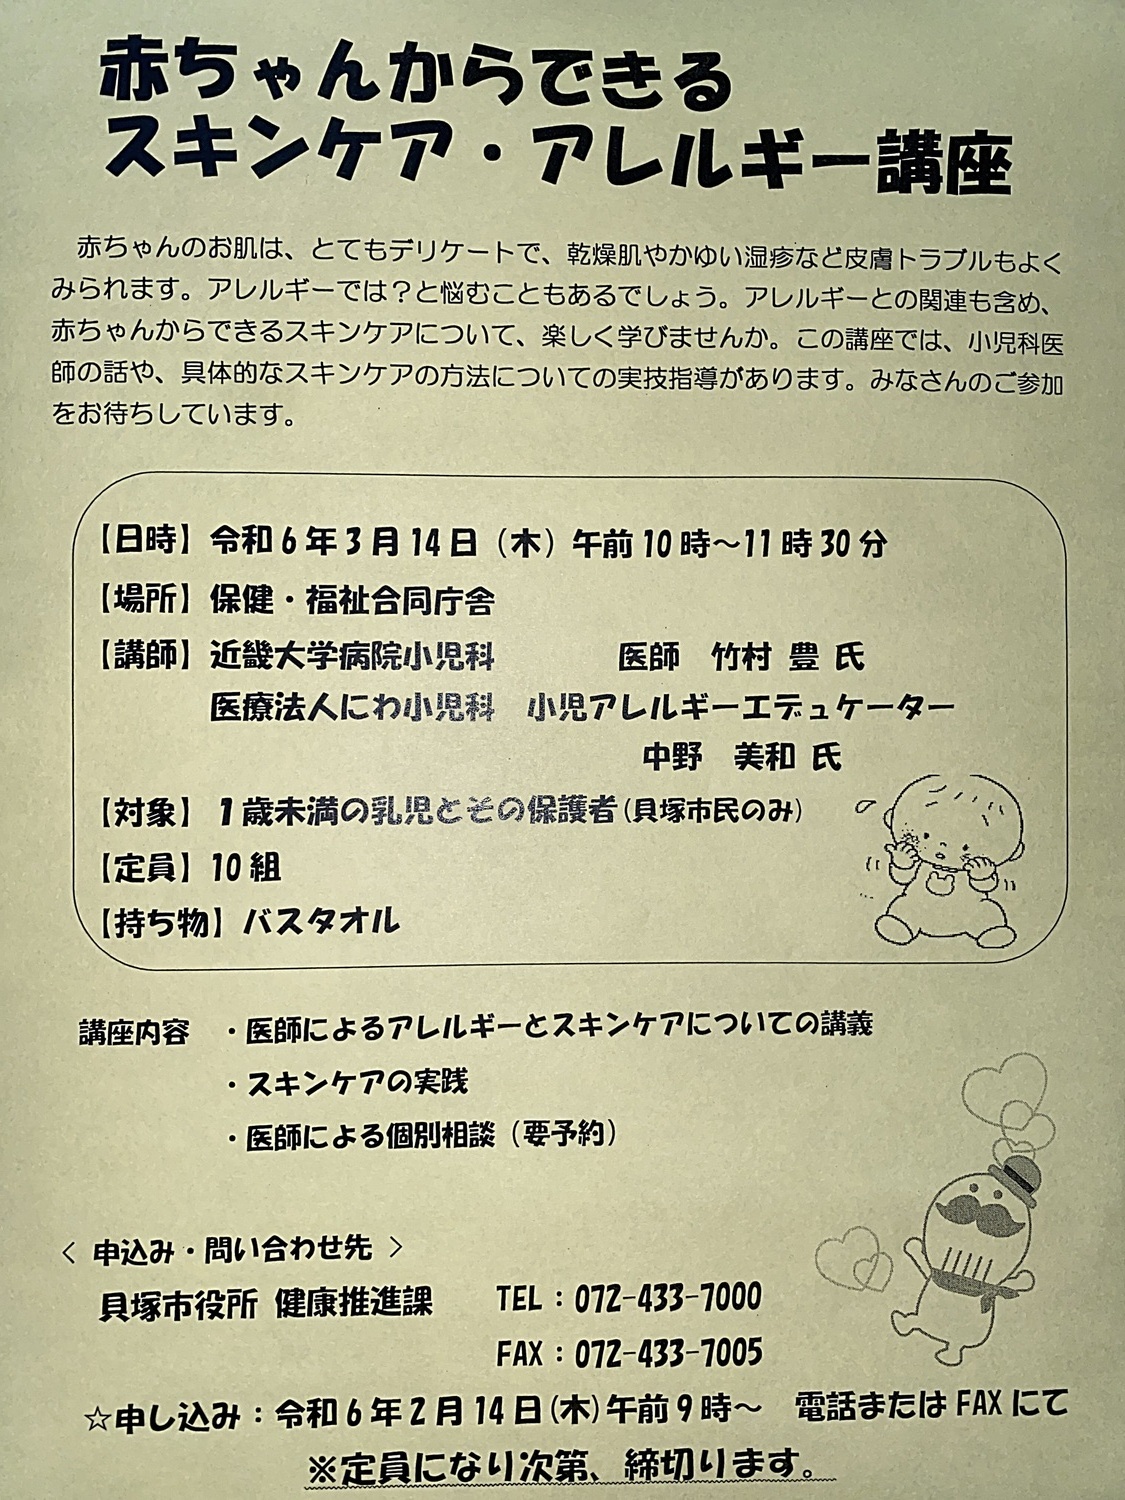 赤ちゃんからできる
スキンケア・アレルギー講座
赤ちゃんのお肌は、とてもデリケートで、乾燥肌やかゆい湿疹など皮膚トラブルもよく
みられます。アレルギーでは？と悩むこともあるでしょう。アレルギーとの関連も含め、
赤ちゃんからできるスキンケアについて、楽しく学びませんか。この講座では、小児科医
師の話や、具体的なスキンケアの方法についての実技指導があります。みなさんのご参加
をお待ちしています。
【日時】令和6年3月14日（木）午前10時～11時30分
【場所】保健・福祉合同庁舎
【講師】近畿大学病院小児科　医師　竹村 豊 氏
医療法人にわ小児科　小児アレルギーエデュケーター
中野　美和 氏
【対象】1歳未満の乳児とその保護者(貝塚市民のみ)
【定員】10組
【持ち物】バスタオル
講座内容　・医師によるアレルギーとスキンケアについての講義
・スキンケアの実践
・医師による個別相談（要予約）
＜ 申込み・問い合わせ先 ＞
貝塚市役所 健康推進課　TEL：072-433-7000
FAX：072-433-7005
☆申し込み：令和6年2月14日(木)午前9時～　電話またはFAXにて
※定員になり次第、締切ります。